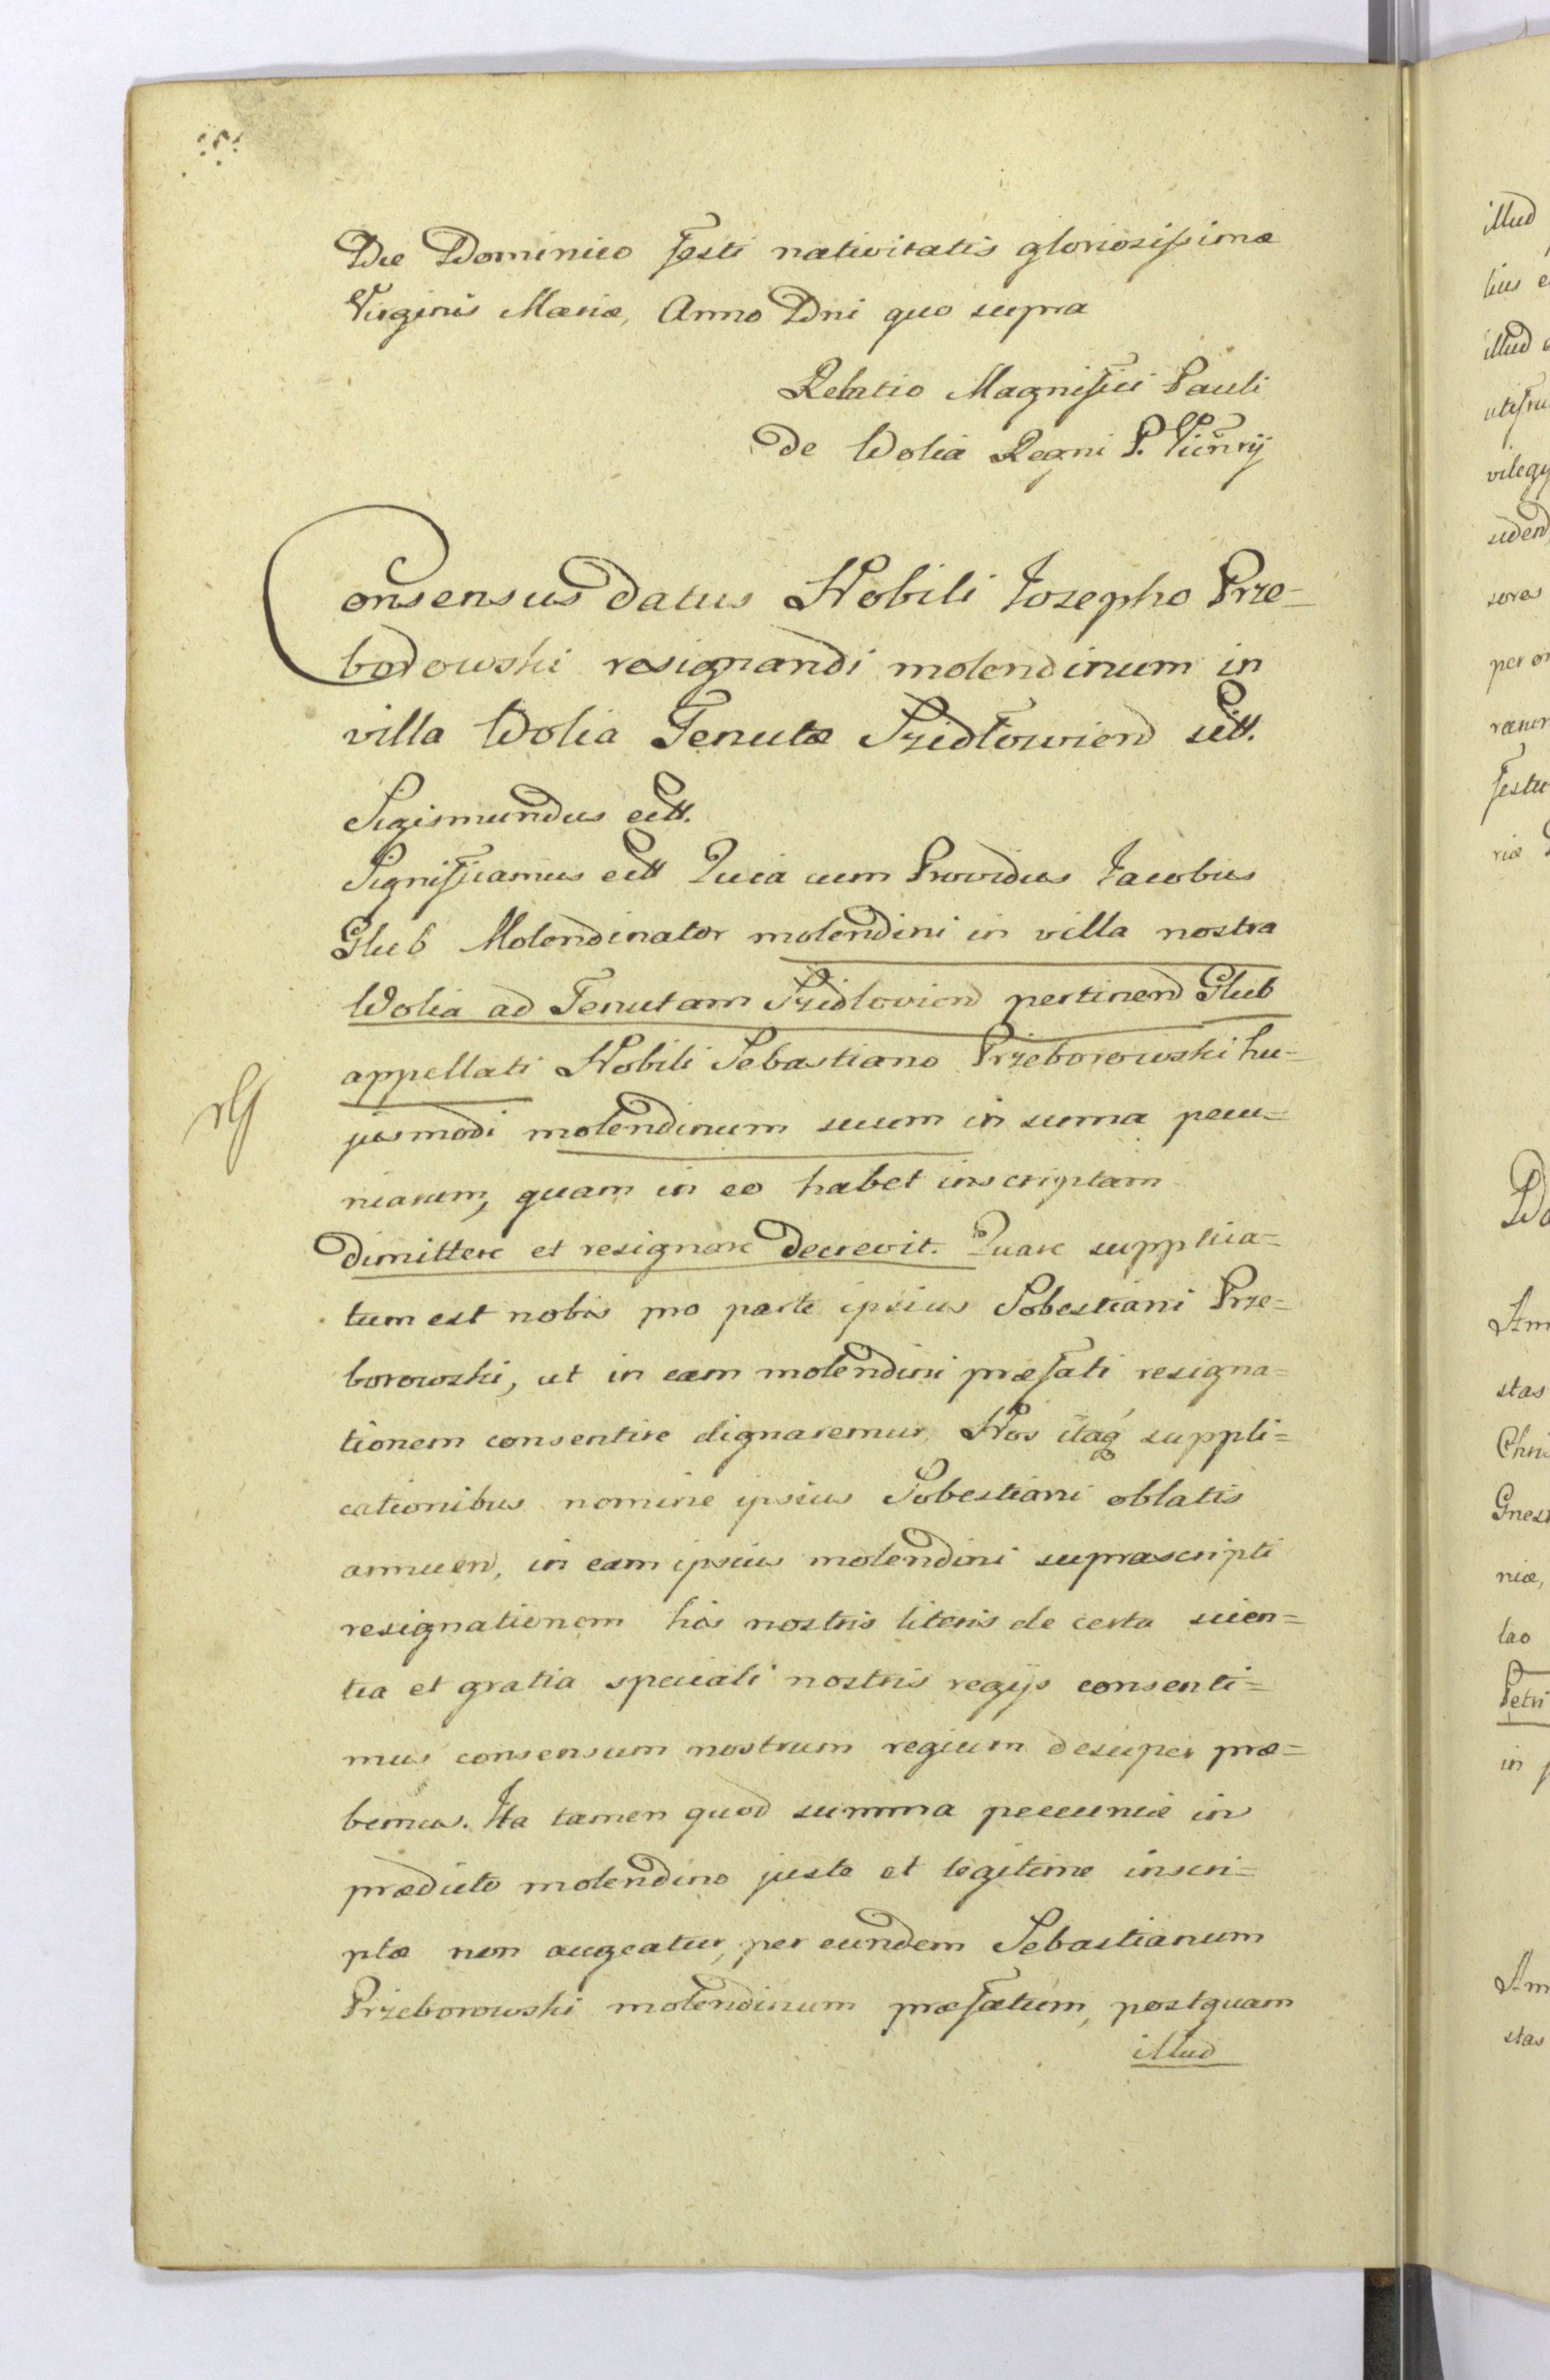 Die Dominico festi nativitatis gloriosissimæ
Virginis Mariæ, Anno Dni quo supra
Relatio Magnifici Pauli
de Wolia Regni P. Vicenrij
Consensus datus Nobili Josepho Prze=
borowski resignandi molendinum in
villa Wolia Tenutæ Szidłowiend sitt.
Sigismundus ectt.
Significamus ectt Quia cum Providus Jacobus
Glub Molendinator molendini in villa nostra
Wolia ad Tenutam Szidloviend pertinend Glub
appellati Nobili Sebastiano Przeborowski hu=
jusmodi molendinum suum in suma pecu=
niarum, quam in eo habet inscriptam
dimittere et resignare decrevit. Quare supplica=
tum est nobis pro parte ipsius Sobestiani Prze=
borowski, ut in eam molendini præfati resigna=
tionem consentire dignaremur, Nos itaq suppli=
cationibus nomine ipsius Sobestiani oblatis
annuen, in eam ipsius molendini suprascripti
resignationem his nostris literis de certa scien=
tia et gratia speciali nostris regijs consenti=
mus consensum nostrum regium desuper præ=
bemus. Ita tamen quod summa pecuniæ in
prædicto molendino juste et legitime inscri=
ptæ non augeatur, per eundem Sebastianum
Przeborowski molendinum præfatum, postquam
illud
illud
lius
illud
vilegy
sidend
sores
per
festu
riæ
stas
Gnes
niæ,
lao
Petri
in
stas